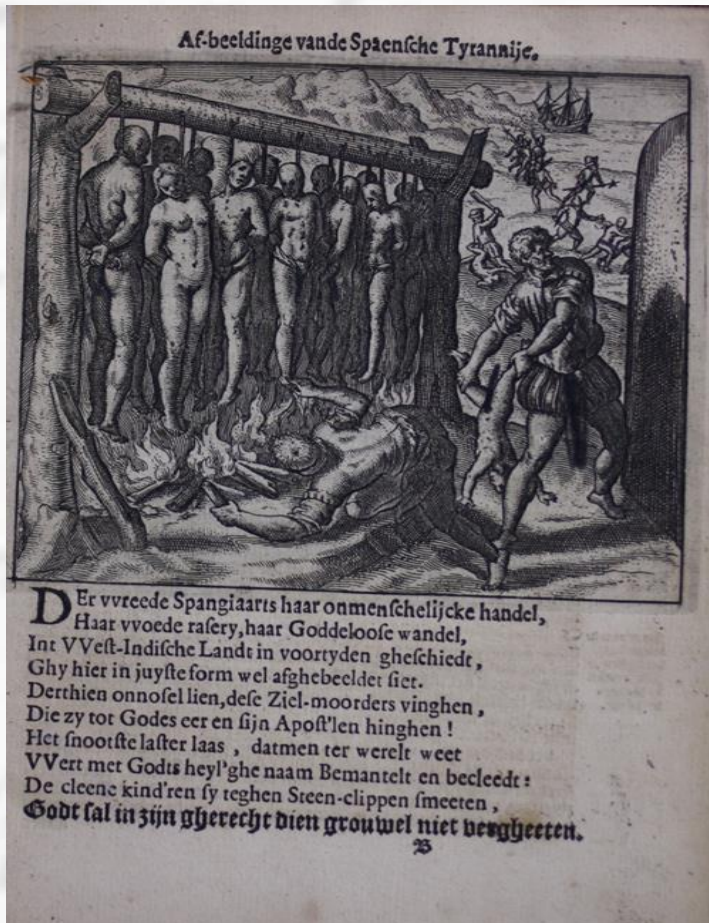 Af-beeldinge vande Spaensche Tyrannije.
DEr vvreede Spangiaarts haar onmenschelijcke handel,
Haar vvoede rasery, haar Goddeloose wandel,
Int VVest-Indische Landt in voortyden gheschiedt,
Ghy hier in juyste form wel afghebeeldet siet.
Derthien onnosel lien, dese Ziel-moorders vinghen,
Die zy tot Godes eer en sijn Apost'len hinghen!
Het snootste laster laas, datmen ter werelt weet
VVert met Godts heyl'ghe naam Bemantelt en becleedt:
De cleene kind'ren sy teghen Steen-clippen smeeten,
Godt sal in zijn gherecht dien grouwel niet vergheeten.
B